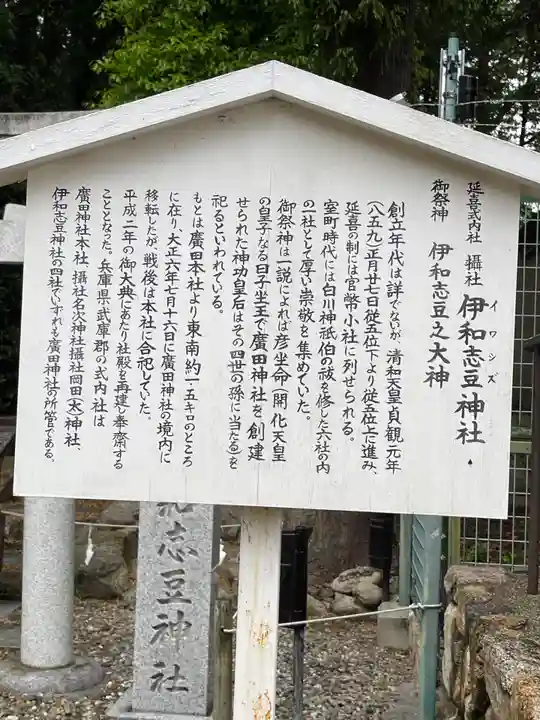 延喜式内社 攝社 伊和志豆神社
イワシズ
御祭神 伊和志豆之大神
創立年代は詳でないが 清和天皇 貞觀元年
(八五九)正月廿七日従五位下より従五位上に進み、
延喜の制には官幣小社に列せられる。
室町時代には白川神祇伯の祓を修した六社の内
の一社として厚い崇敬を集めていた。
御祭神は一説によれば彦坐命(開化天皇
の皇子なる日子坐王で廣田神社を創建
せられた神功皇后はその四世の孫に当たる)を
祀るといわれている。
もとは廣田本社より東南約一五キロのところ
に在り、大正六年七月十六日に廣田神社の境内に
移転したが、戦後は本社に合祀していた。
平成二年の御大典にあたり社殿を再建し奉斎する
こととなった。兵庫県武庫郡の式内社は
廣田神社本社、攝社名次神社攝社岡田(太)神社、
伊和志豆神社の四社でいずれも廣田神社の所管である。
和志豆神社